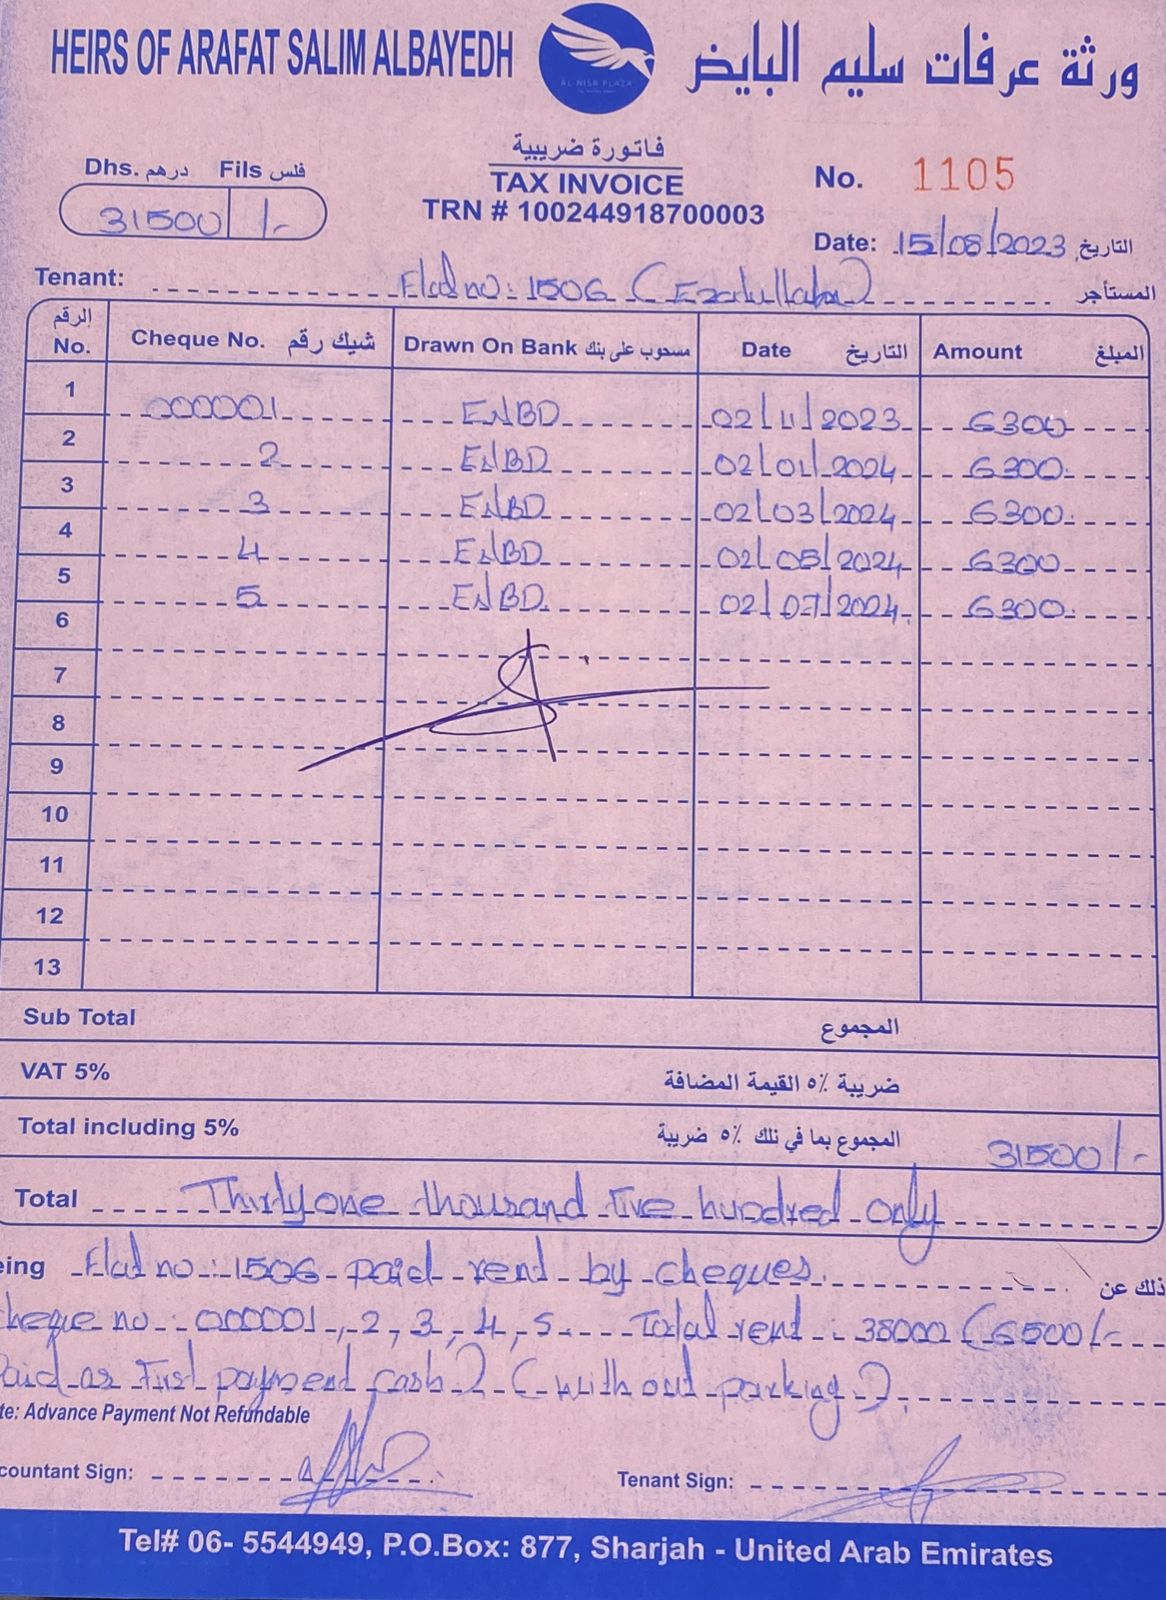 HEIRS OF ARAFAT SALIM ALBAYEDH
ورثة عرفات سليم البايض
AL NISR PLAZA
فاتورة ضريبية
TAX INVOICE
TRN # 100244918700003
Dhs. درهم Fils فلس
31500 /-
No. 1105
Date: 15/08/2023 التاريخ
Tenant: Flat no: 1506 (Ezatullaha) المستأجر
الرقم No. Cheque No. شيك رقم Drawn On Bank مسحوب على بنك Date التاريخ Amount المبلغ
1 000001 ENBD 02/11/2023 6300
2 2 ENBD 02/01/2024 6300
3 3 ENBD 02/03/2024 6300
4 4 ENBD 02/05/2024 6300
5 5 ENBD 02/07/2024 6300
6
7
8
9
10
11
12
13
Sub Total المجموع
VAT 5% ضريبة ٥٪ القيمة المضافة
Total including 5% المجموع بما في ذلك ٥٪ ضريبة 31500/-
Total Thirtyone thousand five hundred only
eing Flat no: 1506 paid rent by cheques. ذلك عن
heque no: 000001, 2, 3, 4, 5. Total rent: 38000 (6500/-
Paid as First payment cash) (without parking).
te: Advance Payment Not Refundable
countant Sign:
Tenant Sign:
Tel# 06- 5544949, P.O.Box: 877, Sharjah - United Arab Emirates